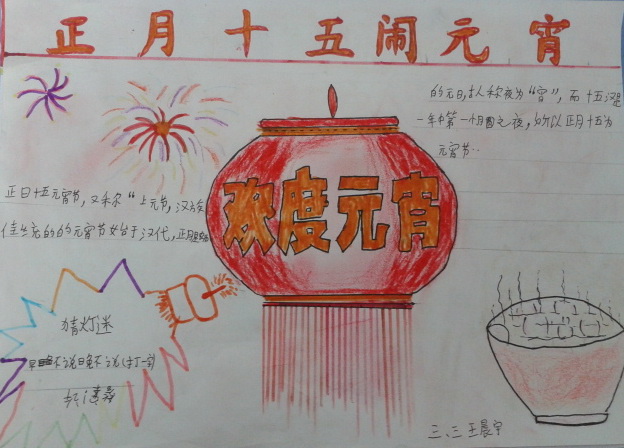 正月十五闹元宵
的元日,古人称夜为“宵”,而十五
一年中第一个月圆之夜,所以正月十五为
元宵节…
欢度元宵
正日十五元宵节,又称“上元节,汉族
佳的元宵节始于汉代,正月是
猜灯迷
不说晚不说(打一字)
三、三 王晨宇